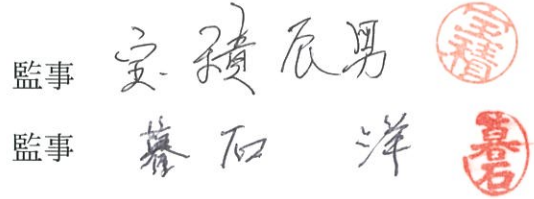 監事 宝積辰男 宝積
監事 暮石 洋 暮石